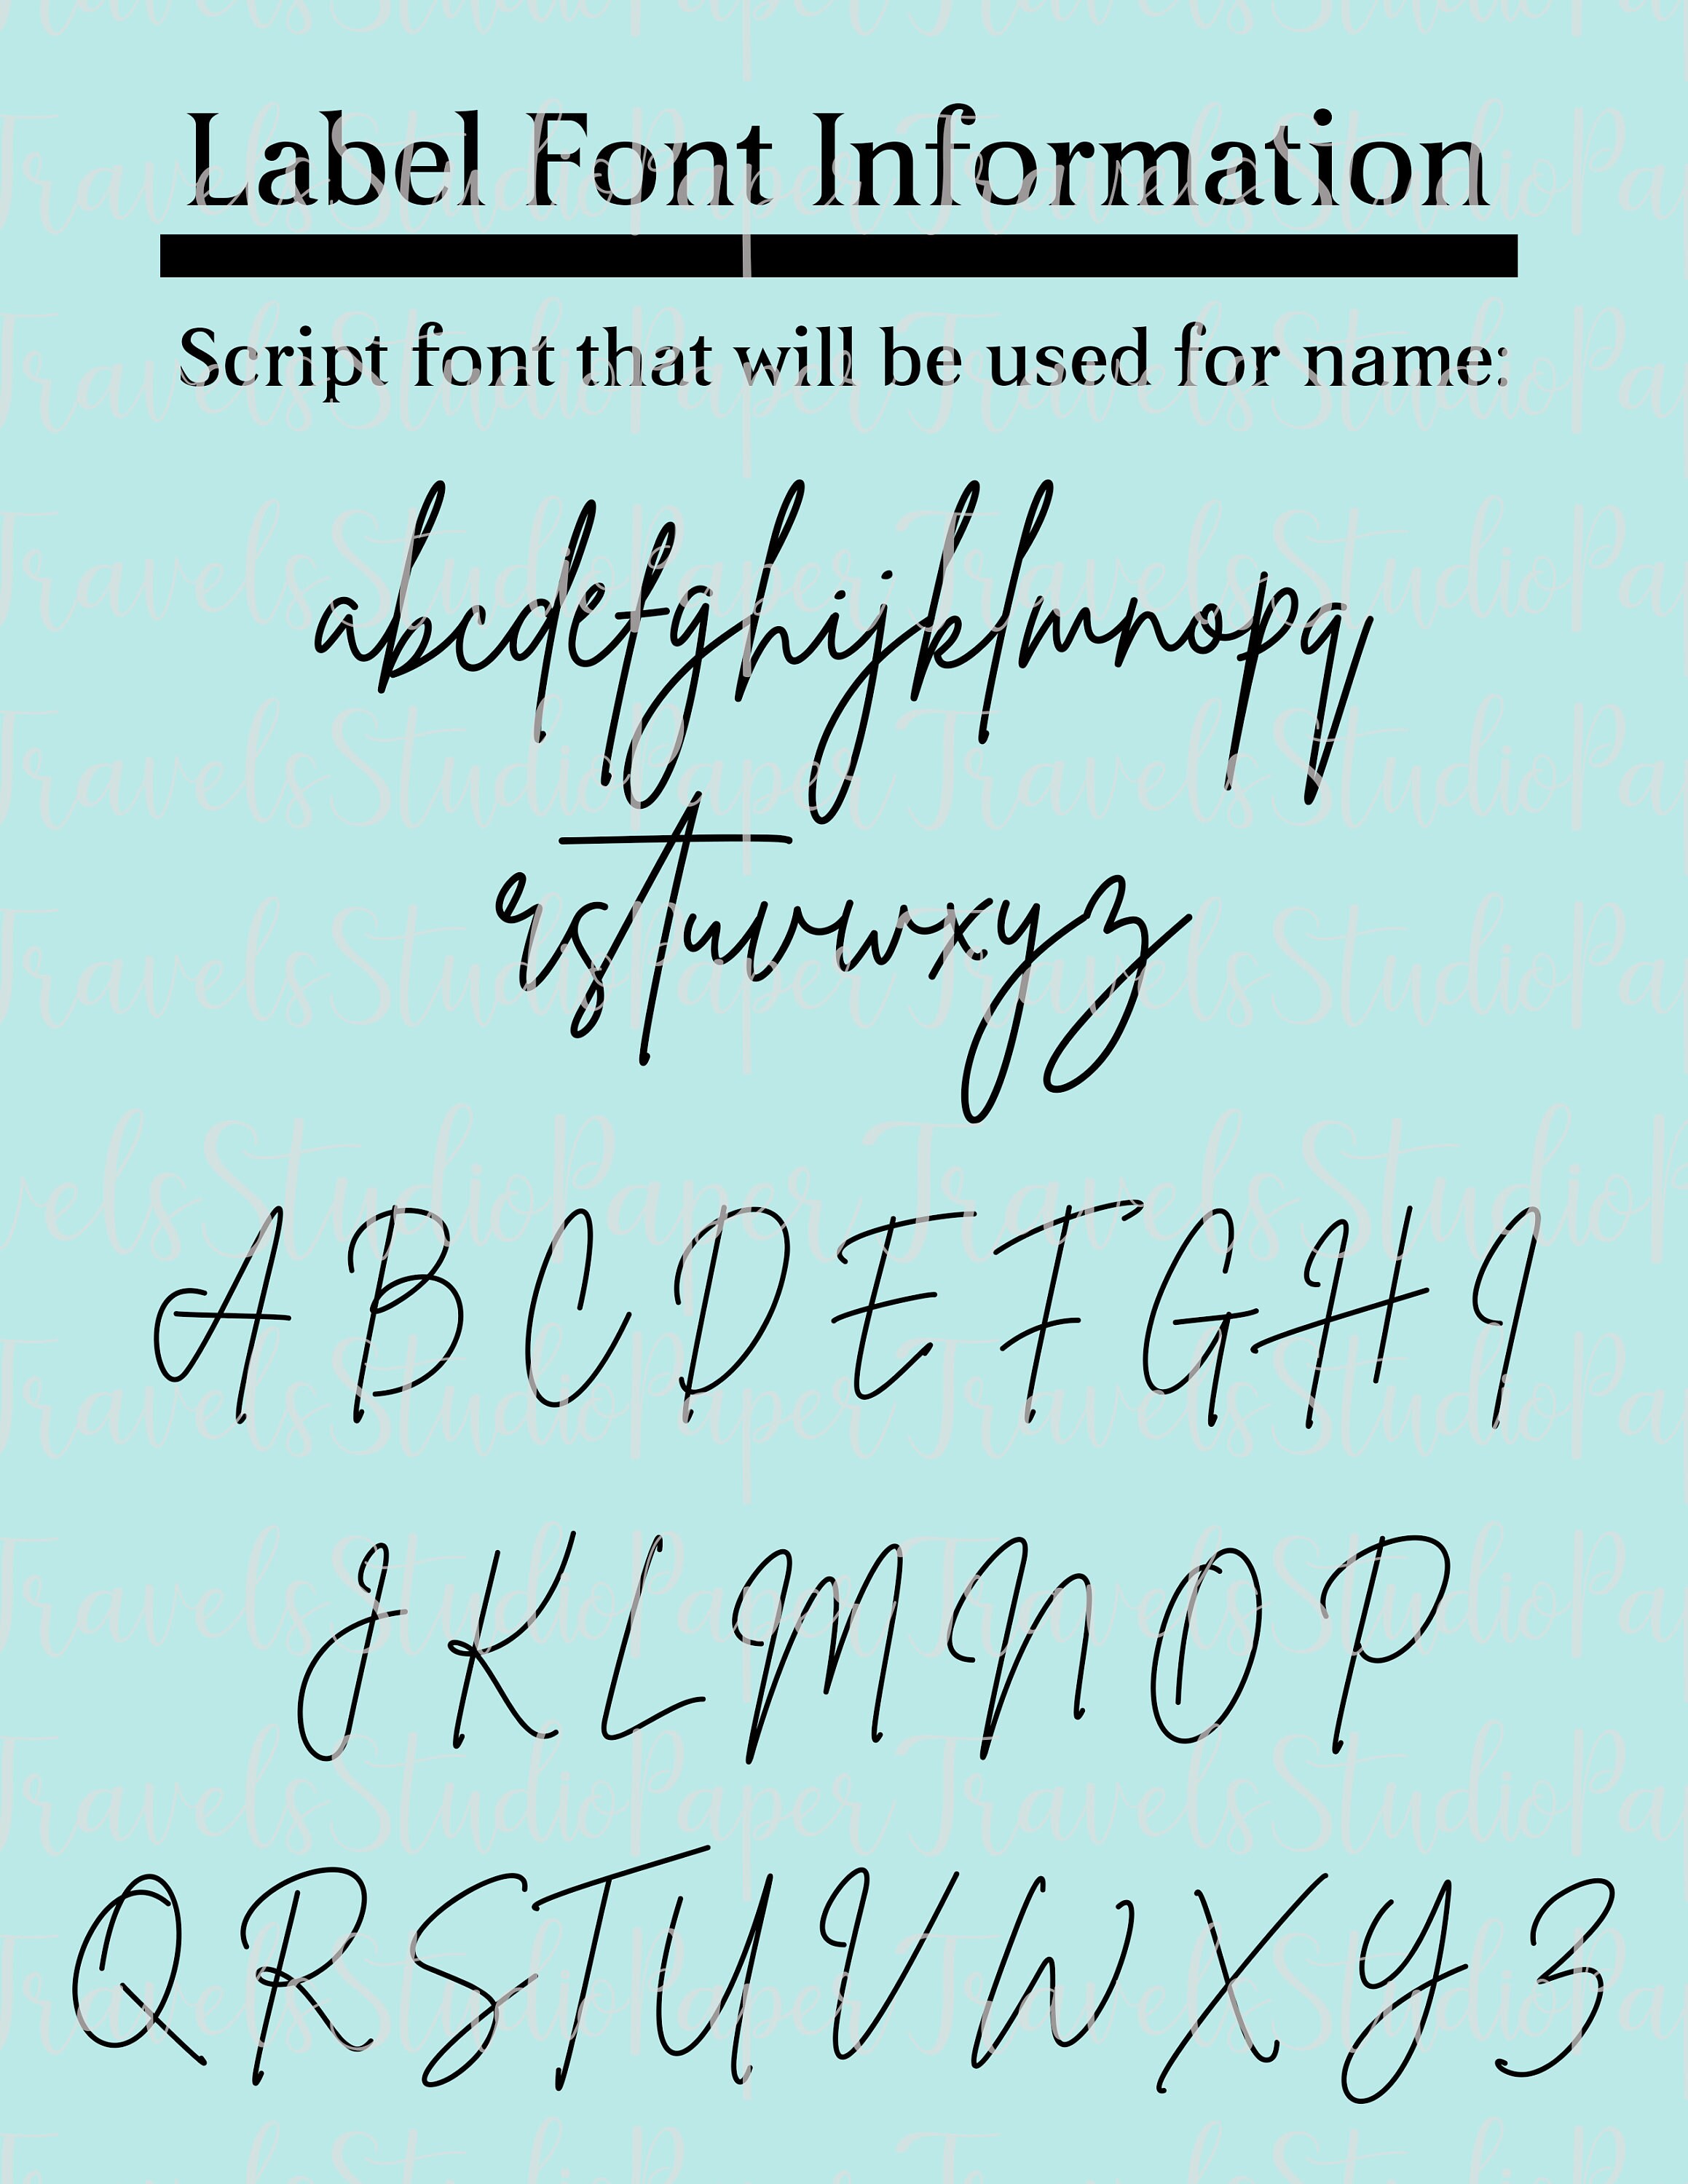 Label Font Information
Script font that will be used for name:
abcdefghijklmnopq
rstuvwxyz
A B C D E F G H I
J K L M N O P
Q R S T U V W X Y Z
TravelsStudioPaper